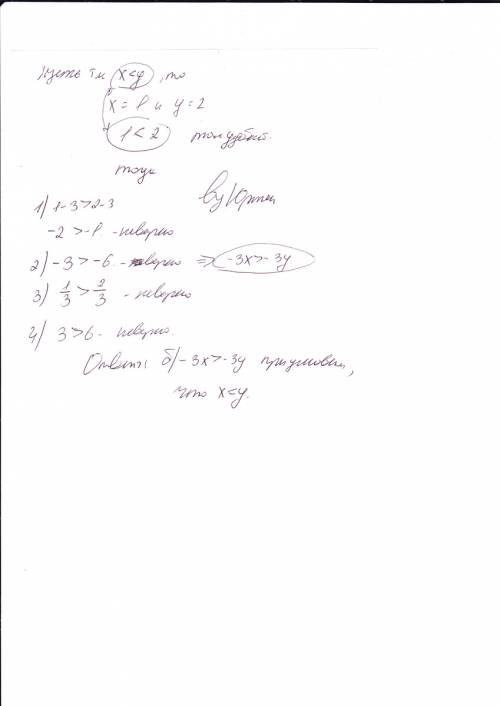 Пусть т.к x<y, то
x = 1 и y = 2
1 < 2
тогда
by Юрген
1) 1-3>2-3
-2 > -1 - неверно
2) -3 > -6 - верно => -3x>-3y
3) 1/3 > 2/3 - неверно
4) 3>6 - неверно.
Ответ: б) -3x>-3y при условии,
что x<y.